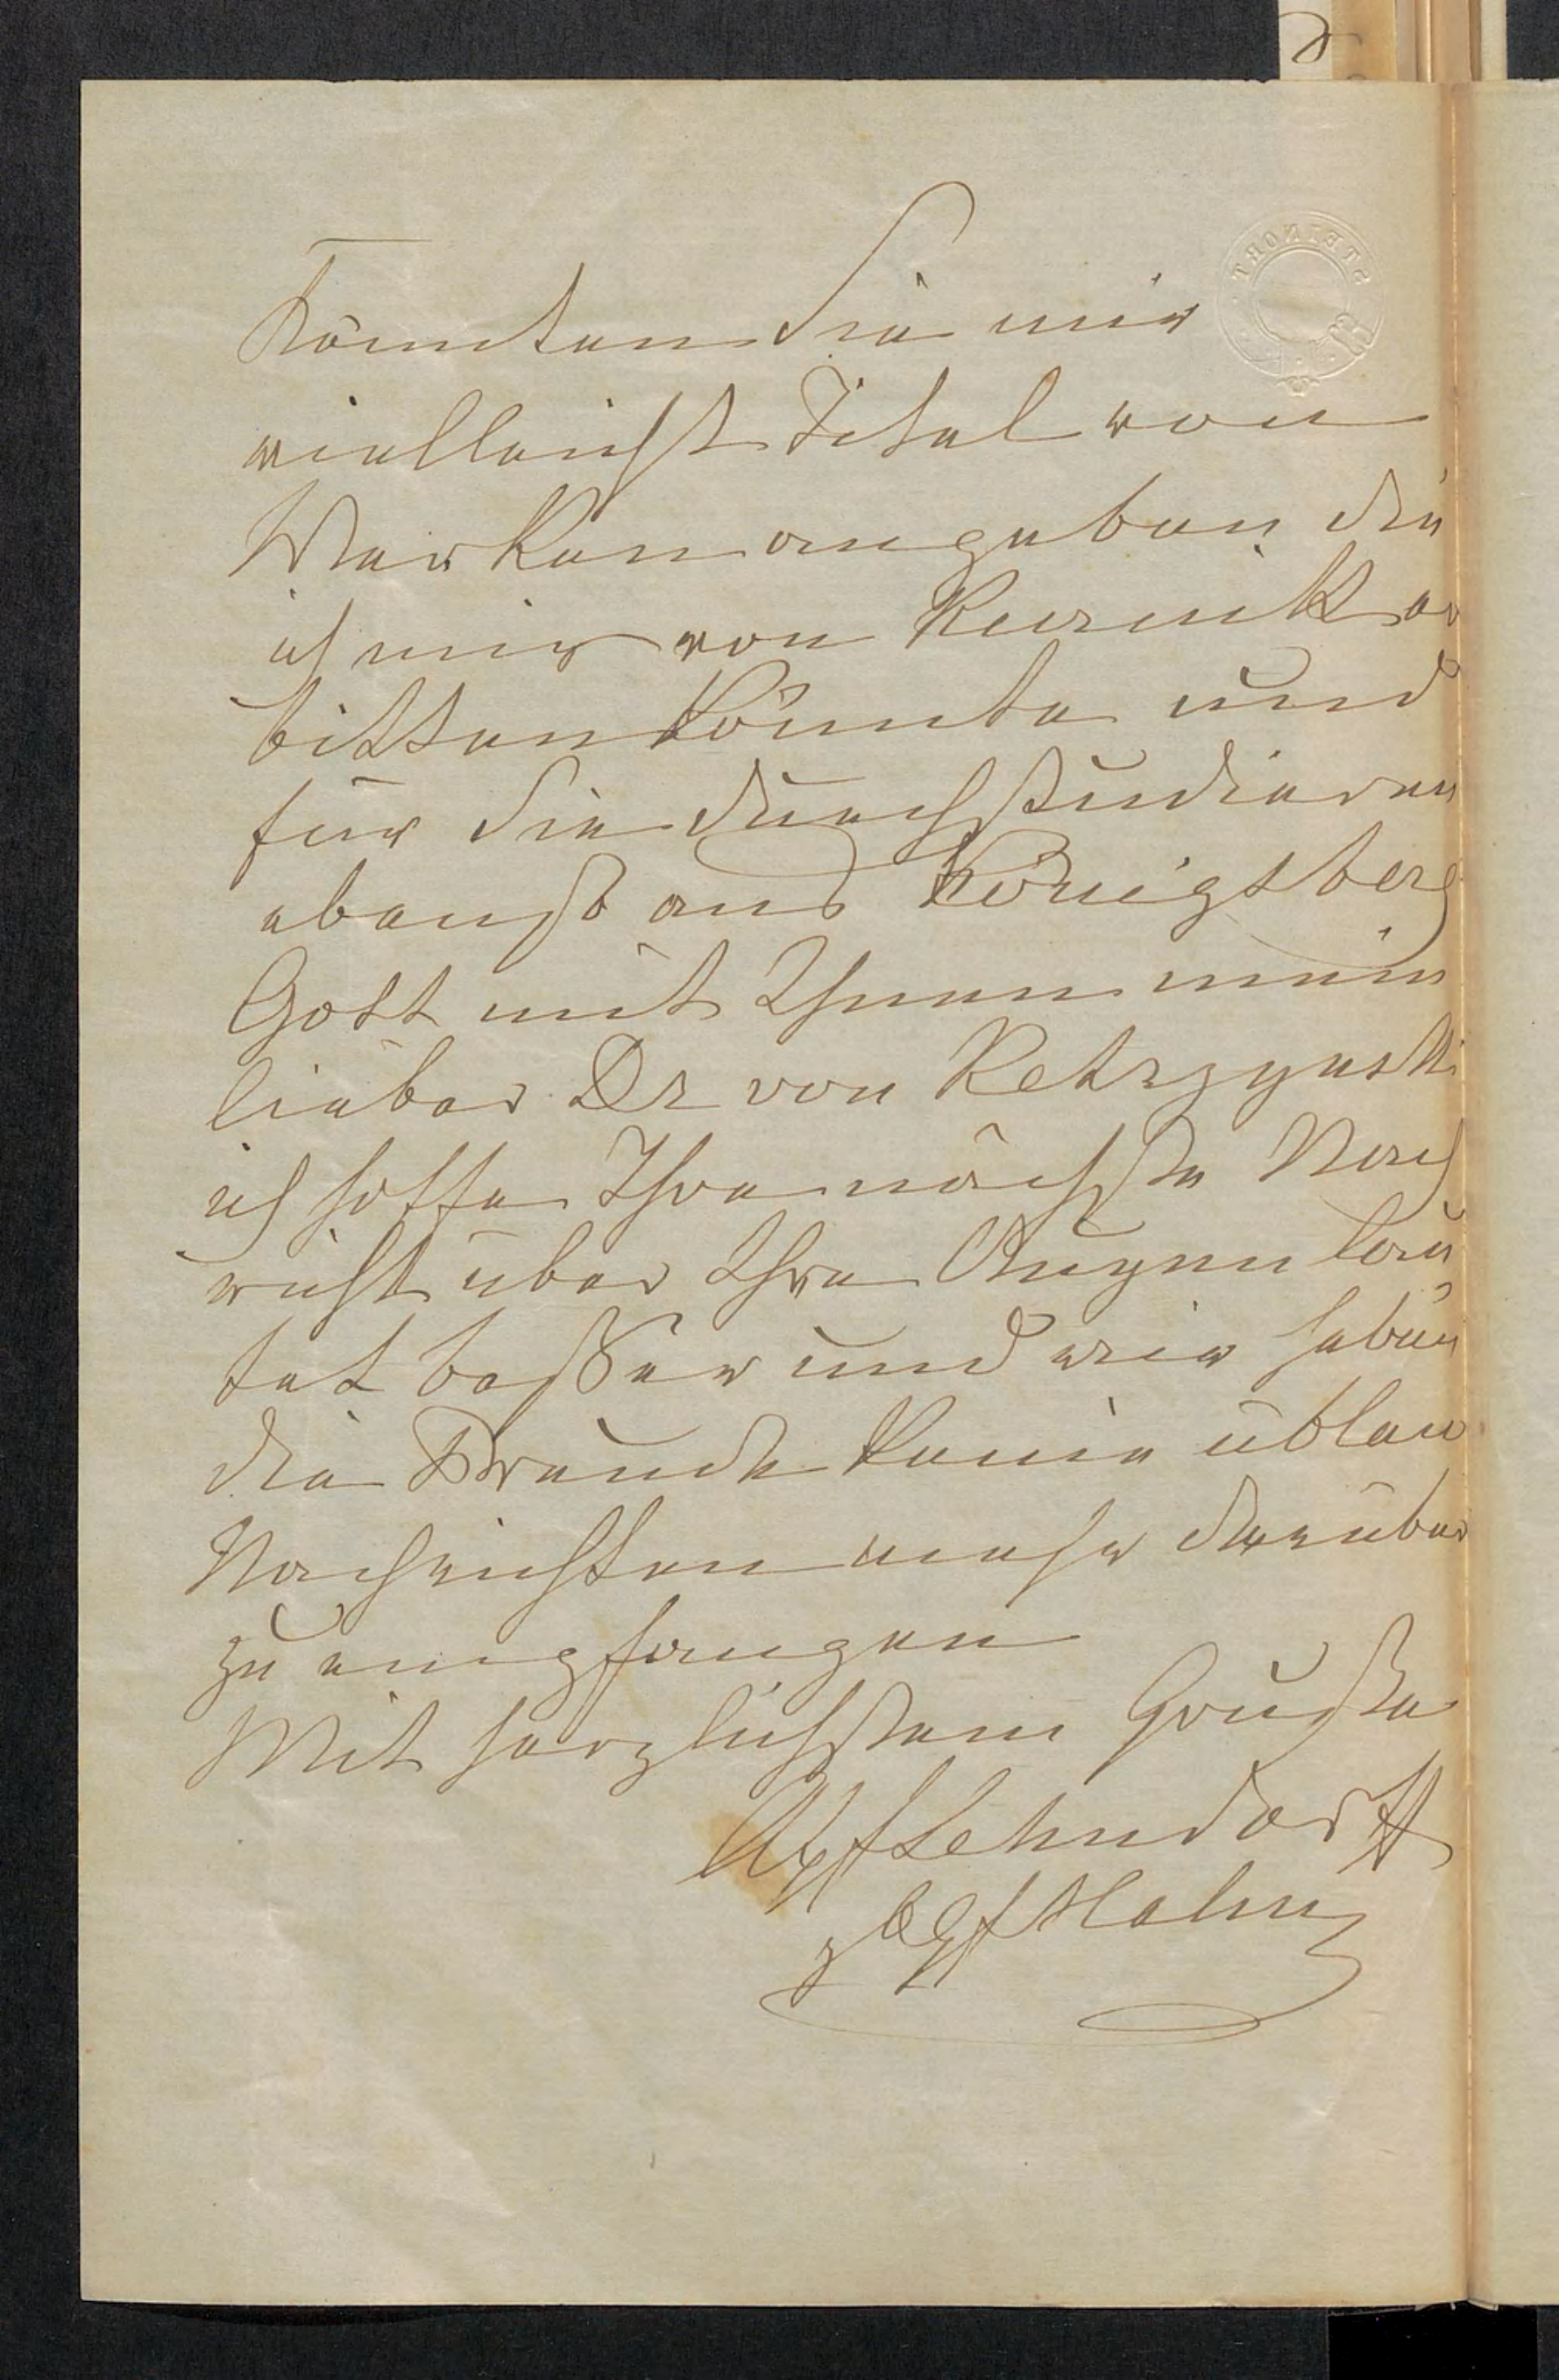 Könnten Sie mir
vielleicht Titel von
Werken angeben die
ich mir von Kurnik er
bitten könnte und
für Sie durchstudieren
ebenso aus Königsberg
Gott mit Ihnen mein
lieber Dr von Ketrzynski
ich hoffe Ihre nächste Nach
richt über Ihre Augen lau
tet beßer und wir haben
die Freude keine üblen
Nachrichten mehr darüber
zu empfangen
Mit herzlichstem Gruße
Lehndorff
Hahn
STEINORT